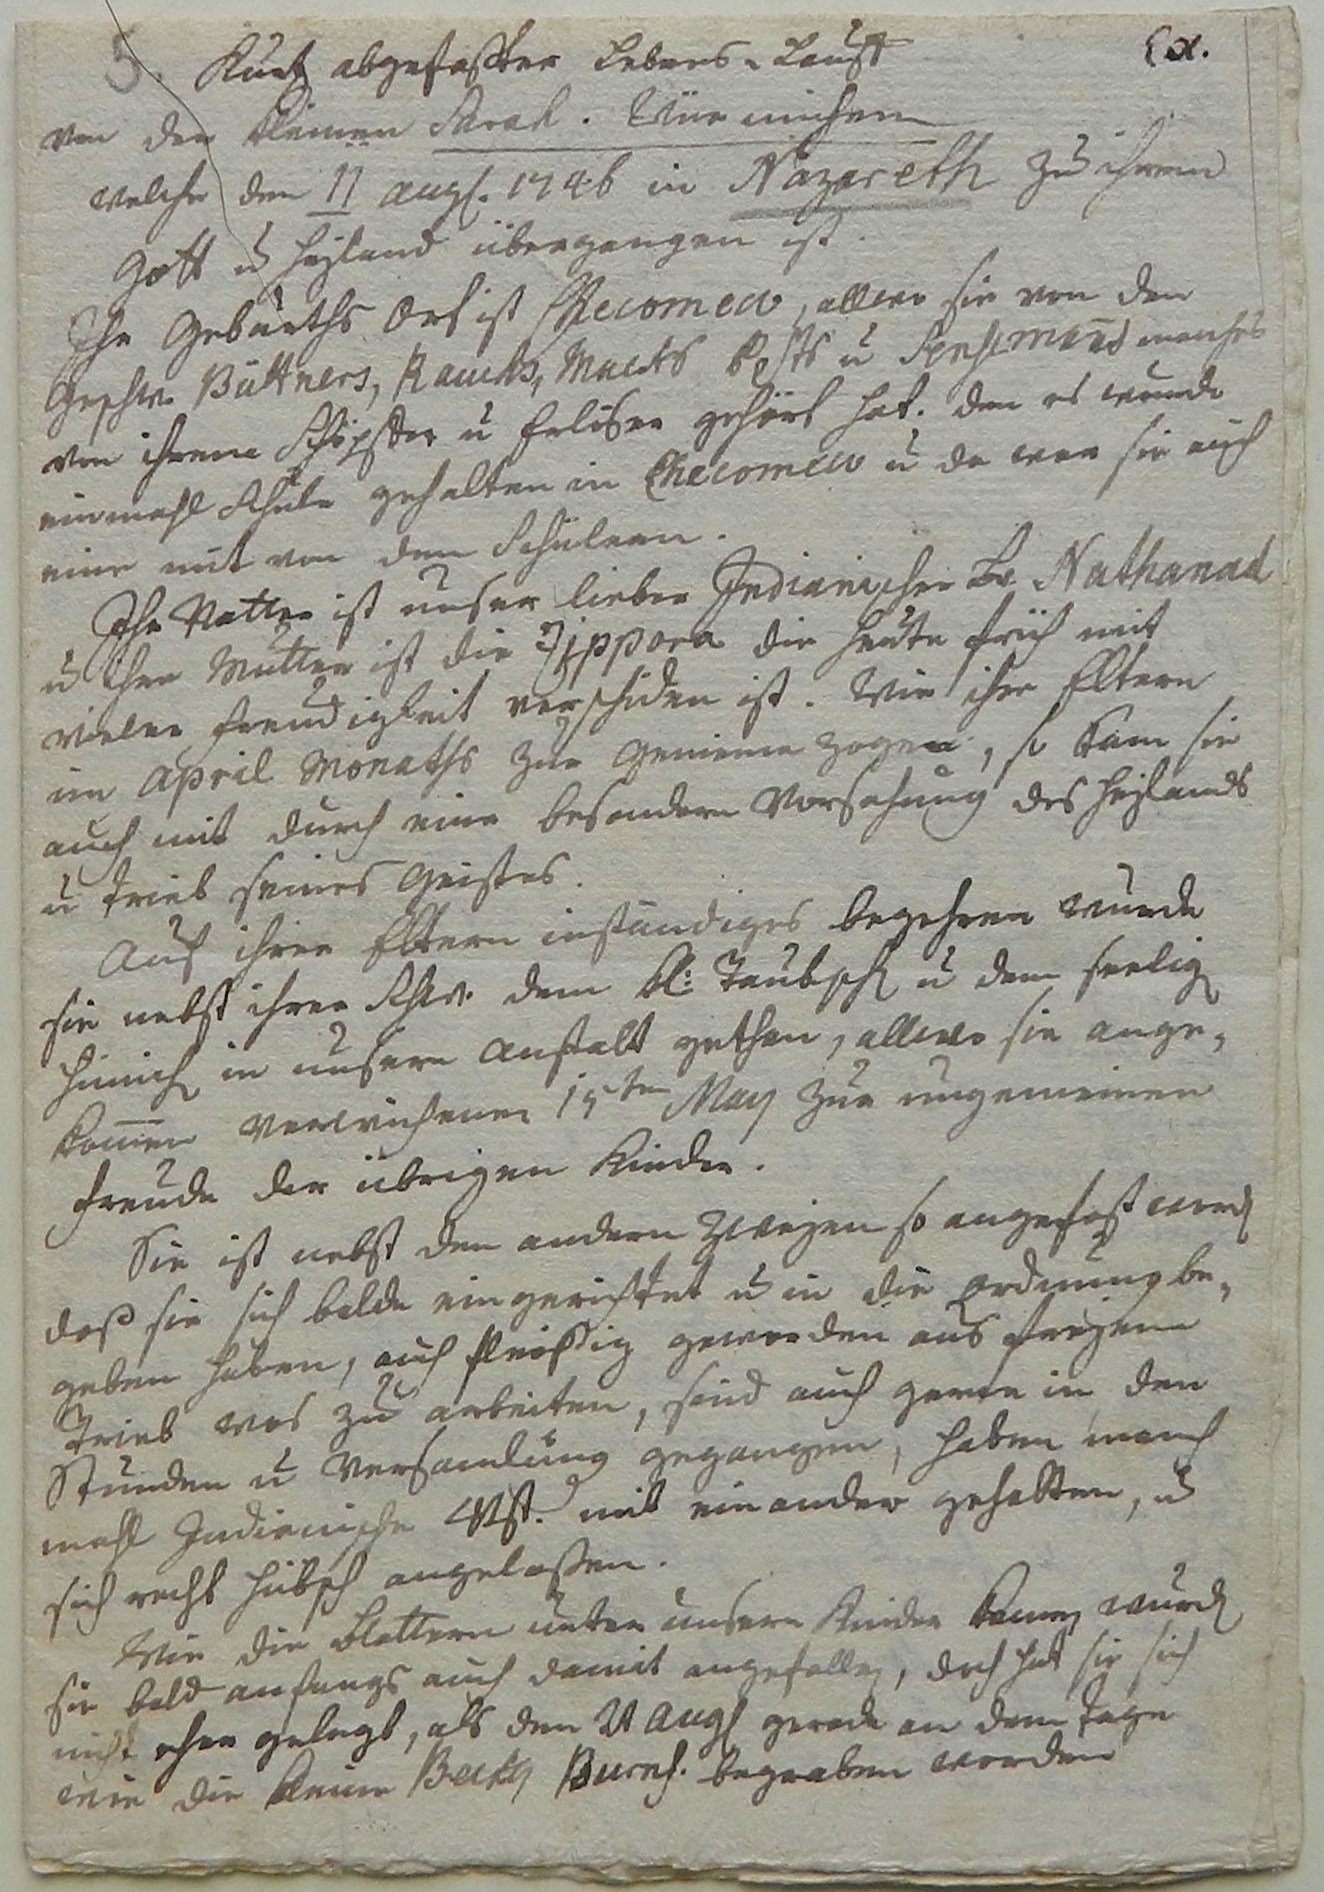 5. Kurtz abgefaßter Lebens-Lauff Ex.
von der kleinen Sarah.
welche den 11 augs. 1746 in Nazareth zu ihrem
Gott u Heyland übergangen ist.
Ihr Gebürths Ort ist Checomeco, allwo sie von den
Geschw. Büttners, Rauchs, Macks Posts u Senseman manches
von ihrem Schöpffer u Erlöser gehört hat. den es wurde
einmahl Schule gehalten in Checomeco u da war sie auch
eine mit von den Schülern.
Ihr Vatter ist unser lieber Indianischer Br Nathanael
u ihre Mutter ist die Zippora die heute früh mit
vieler freudigkeit verschiden ist. Wie ihre Eltern
im April Monaths zur Gemeine zogen, so kam sie
auch mit durch eine besondere Vorsehung des Heylands
u trieb seines Geistes.
Auf ihrer Eltern inständiges begehren wurde
sie nebst ihrer Schw. dem kl: Täubch u dem seelig
Hinrich in unsere Anstalt gethan, allwo sie ange-
kommen verwichenen 15ten May zur ungemeinen
freude der übrigen Kinder.
Sie ist nebst den andern zweyen so angefast word
daß sie sich balde eingerichtet u in die Ordnung be-
geben haben, auch fleißig geworden aus freyem
Trieb was zu arbeiten, sind auch gerne in den
Stunden u Versamlung gegangen, haben manch
mahl Indianische Vst. mit einander gehalten, u
sich recht hübsch angelaßen.
Wie die Blattern unter unsere Kinder kamen wurd
sie bald anfangs auch damit angefallen, doch hat sie sich
nicht eher gelegt, als den 21 Augs gerade an dem Tage
wie die kleine Becky Burns. begraben worden